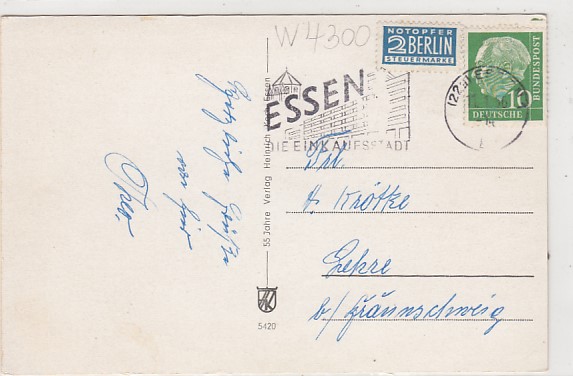 W 4300
NOTOPFER
2 BERLIN
STEUERMARKE
DEUTSCHE
10
BUNDESPOST
(22
ESSEN
DIE EINKAUFSSTADT
Herzliche Grüße
von hier
55 Jahre Verlag Heinrich Koch, Essen
5420
H. Krötke
Lehre
b/ Braunschweig